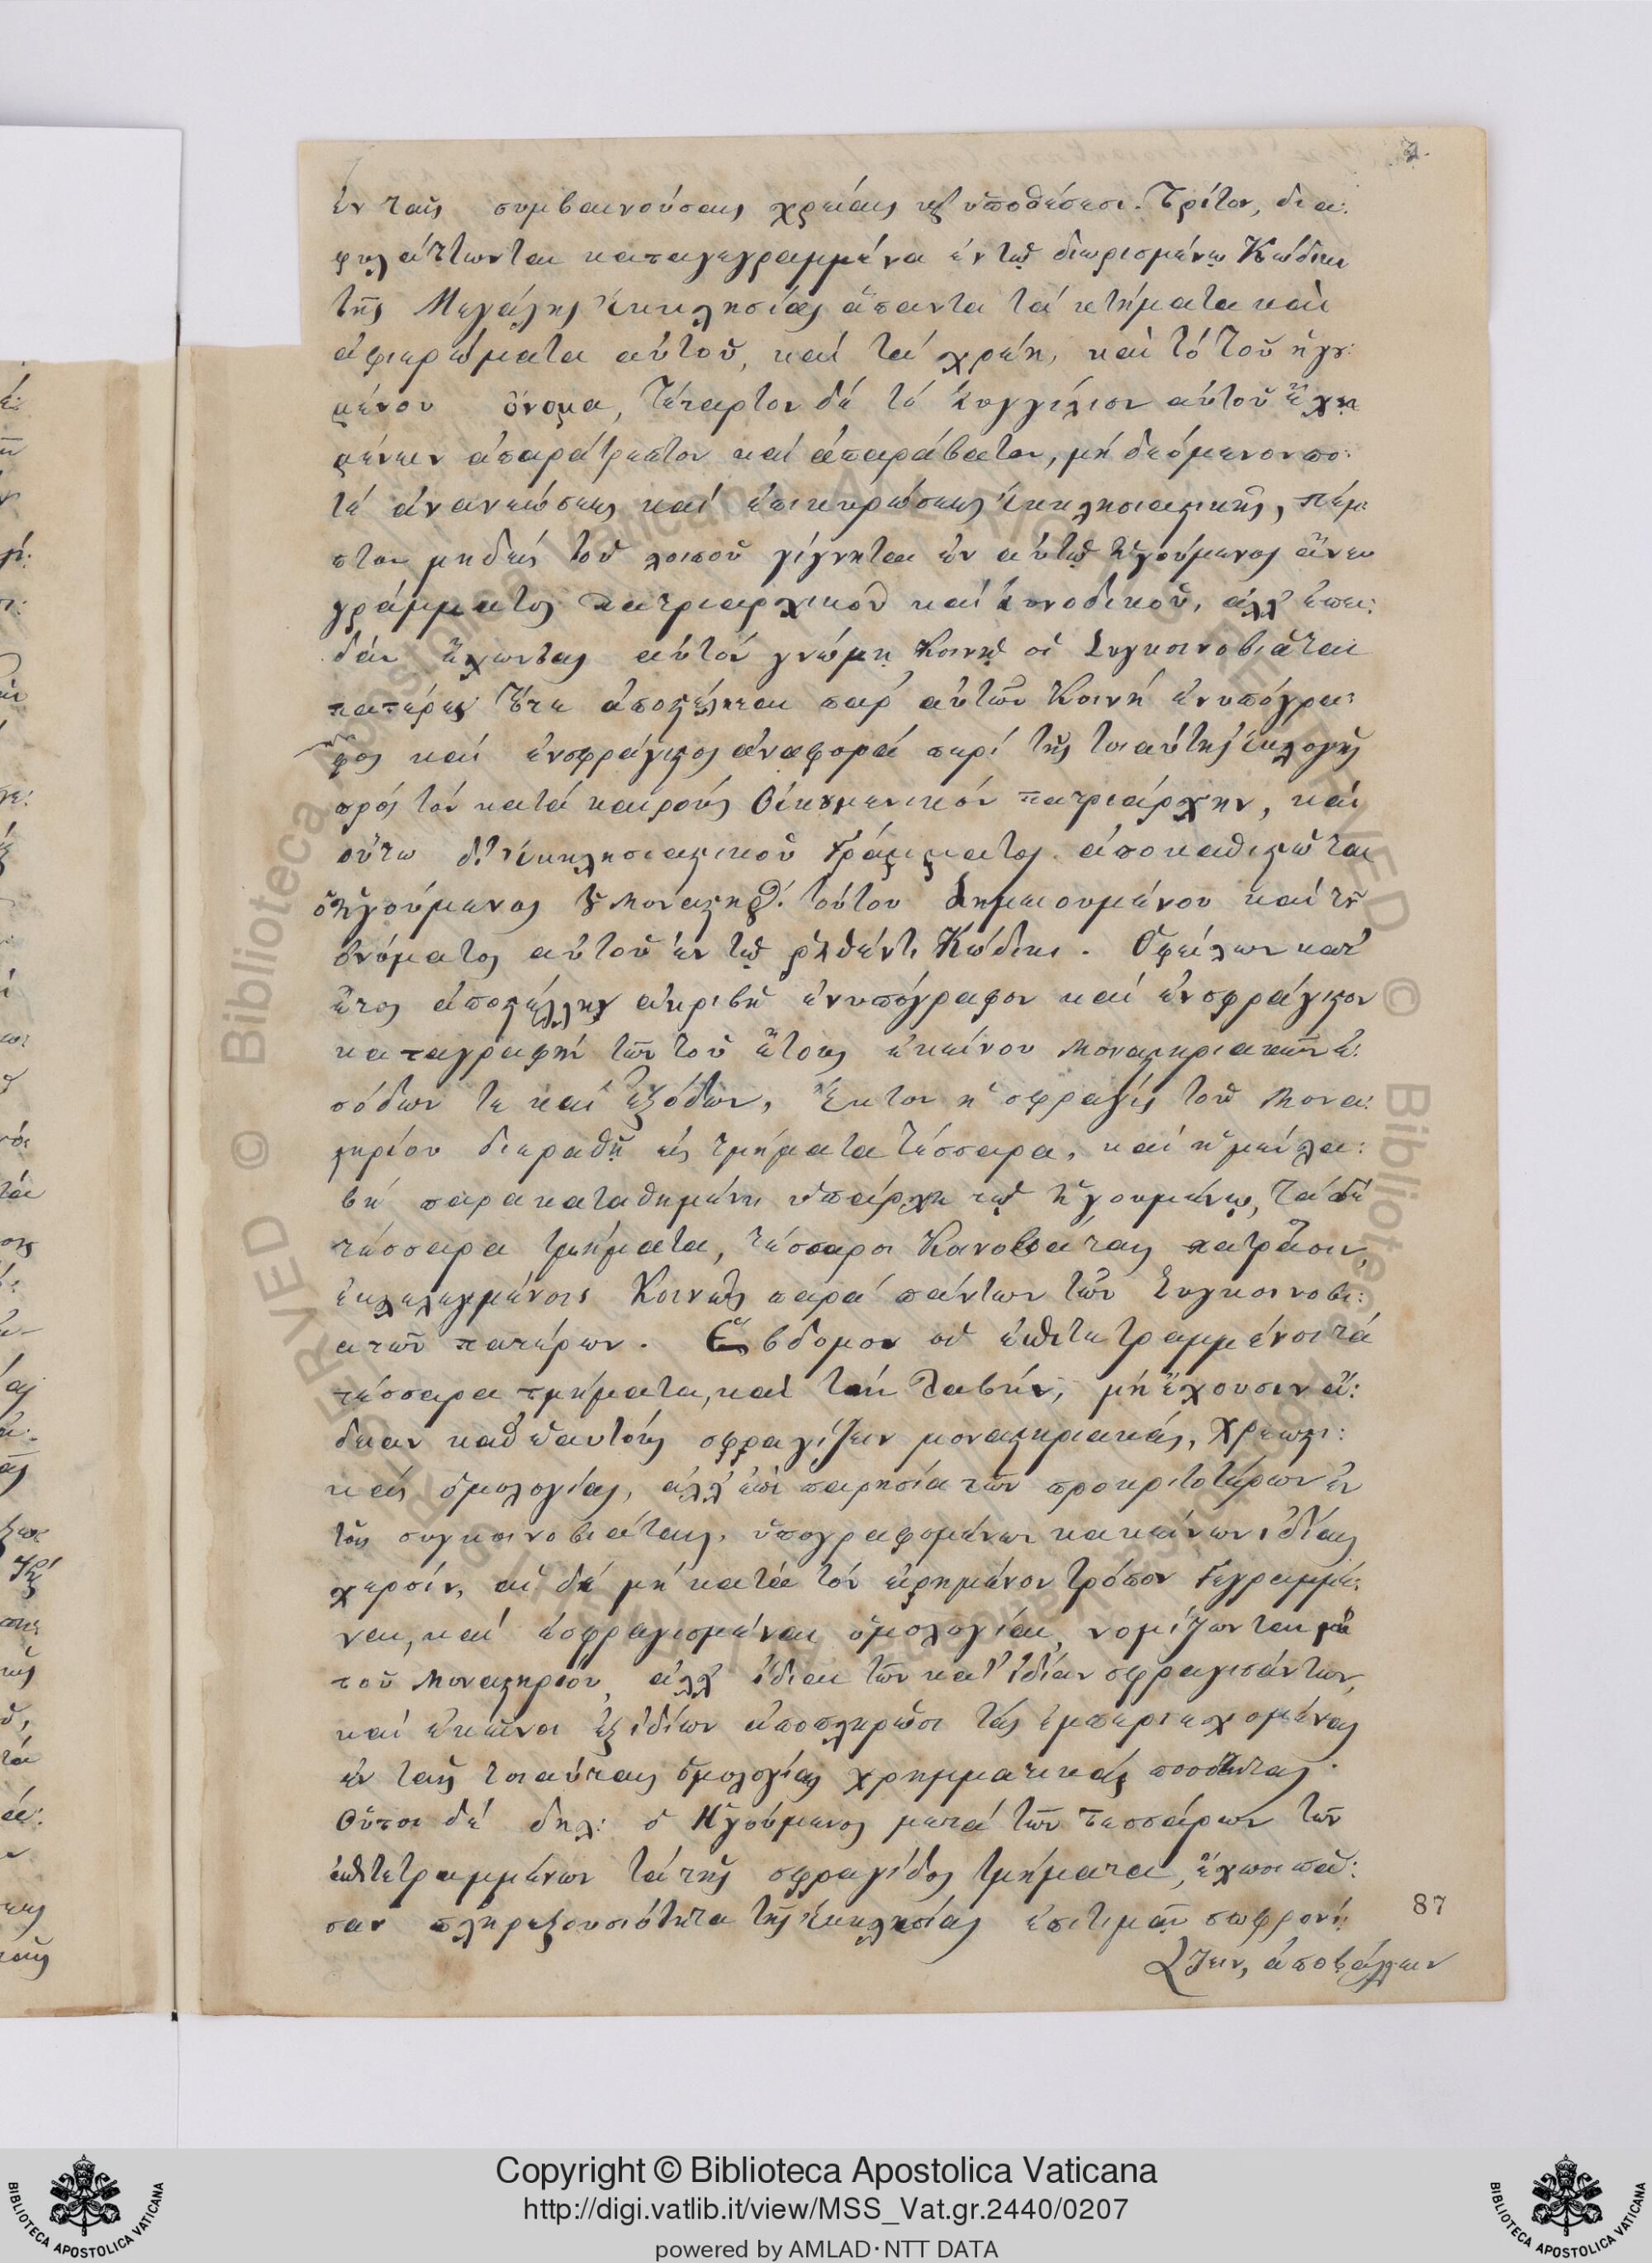 ἐν ταῖς συμβαινούσαις χρείαις καὶ ὑποθέσεσι. Τρίτον, δια:
φυλάττωνται καταγεγραμμένα ἐν τῷ διωρισμένῳ Κώδικι
τῆς Μεγάλης Ἐκκλησίας ἅπαντα τά κτήματα καὶ
ἀφιερώματα αὐτοῦ, καί τά χρέη, καὶ τό τοῦ ἡγου:
μένου ὄνομα, Τέταρτον δέ τό Σιγγίλιον αὐτοῦ ἔχῃ
μένειν ἀπαράτρεπτον καί ἀπαράβατον, μή δεόμενον πο:
τέ ἀνανεώσεως καί ἐπικυρώσεως Ἐκκλησιαστικῆς, πέμ:
πτον μηδείς τοῦ λοιποῦ γίγνηται ἐν αὐτῷ Ἡγούμενος ἄνευ
γράμματος πατριαρχικοῦ καί Συνοδικοῦ, ἀλλ' ἐπει:
δάν αὐτόν γνώμῃ Κοινῇ οἱ Συγκοινοβιᾶται
πατέρες τότε ἀποστέληται παρ' αὐτῶν Κοινή ἐνυπόγρα:
φος καί ἐνσφράγιστος ἀναφορά περί τῆς τοιαύτης ἐκλογῆς
πρός τόν κατά καιρούς Οἰκουμενικόν πατριάρχην, καί
οὕτω δι' ἐκκλησιαστικοῦ Γράμματος ἀποκαθιστῶται
ὁ Ἡγούμενος τοῦ Μοναστηρ: τούτου Σημειουμένου καί τοῦ
ὀνόματος αὐτοῦ ἐν τῷ ῥηθέντι Κώδικι. Ὀφείλων κατ'
ἔτος ἀποστέλλειν ἀκριβῆ ἐνυπόγραφον καί ἐνσφράγιστον
καταγραφήν τῶν τοῦ ἔτους ἐκείνου Μοναστηριακῶν ἐ:
σόδων τε καί ἐξόδων, Ἕκτον ἡ σφραγίς τοῦ Μονα:
στηρίου διεραθῇ εἰς τμήματα τέσσαρα, καί ἡ μέν λα:
βή παρακαταθημένη ὑπάρχῃ τῷ Ἡγουμένῳ, τά δέ
τέσσαρα τμήματα, τέσσαρσι Κοινοβιάταις πατράσιν,
ἐκλελεγμένοις Κοινῶς παρά πάντων τῶν Συγκοινοβι:
ατῶν πατέρων. Ἕβδομον οἱ ἐπιτετραμμένοι τά
τέσσαρα τμήματα, καί τήν Λαβήν, μή ἔχουσιν ἄ:
δειαν καθ' ἑαυτούς σφραγίζειν μοναστηριακάς, Χρεωστι:
κάς ὁμολογίας, ἀλλ' ἐπί παρησία τῶν προκριτοτέρων ἐν
τοῖς συγκοινοβιάταις, ὑπογραφομένων κακείνων ἰδίαις
χερσίν, αἱ δέ μή κατά τόν εἰρημένον τρόπον Γεγραμμέ:
ναι, καί ἐσφραγισμέναι ὁμολογίαι, νομίζωνται μή
τοῦ Μοναστηρίου, ἀλλ' ἴδιαι τῶν κατ' ἰδίαν σφραγισάντων,
καί ἐκεῖνοι ἐξ ἰδίων ἀποπληρῶσι τάς ἐμπεριεχομένας
ἐν ταῖς τοιαύταις ὁμολογίαις χρημματικάς ποσότητας.
Οὗτοι δέ δηλ: ὁ Ἡγούμενος μετά τῶν τεσσάρων τῶν
ἐπιτετραμμένων τά τῆς σφραγίδος τμήματα, ἔχωσι πᾶ:
σαν πληρεξουσιότητα τῆς Ἐκκλησίας ἐπιτιμᾶν σωφρονί:
ζειν, ἀποβάλλειν
87
Copyright © Biblioteca Apostolica Vaticana
http://digi.vatlib.it/view/MSS_Vat.gr.2440/0207
powered by AMLAD·NTT DATA